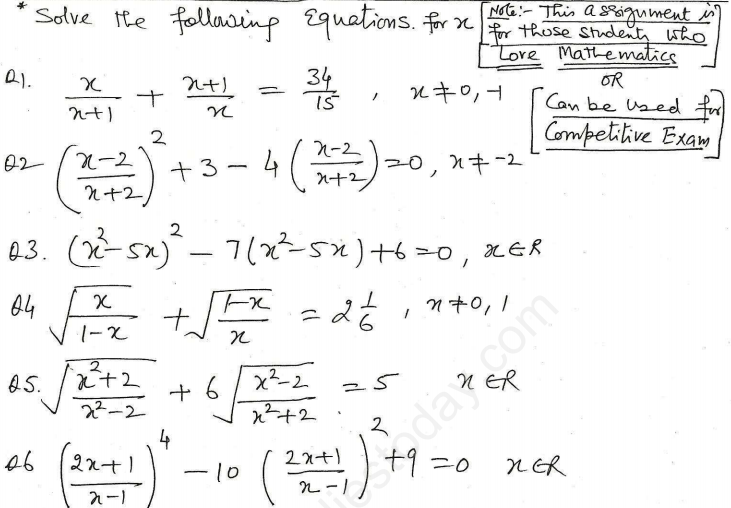 * Solve the following Equations. for x
Note:- This assignment is
for those students who
Love Mathematics
OR
[Can be used for
Competitive Exam]
Q1. x/(x+1) + (x+1)/x = 34/15 , x ≠ 0, -1
Q2 ((x-2)/(x+2))² + 3 - 4((x-2)/(x+2)) = 0, x ≠ -2
Q3. (x²-5x)² - 7(x²-5x)+6=0, x∈R
Q4 √(x/(1-x)) + √((1-x)/x) = 2 1/6 , x≠0, 1
Q5. √((x²+2)/(x²-2)) + 6√((x²-2)/(x²+2)) = 5 x∈R
Q6 ((2x+1)/(x-1))⁴ - 10((2x+1)/(x-1))² + 9 = 0 x∈R
iestoday.com